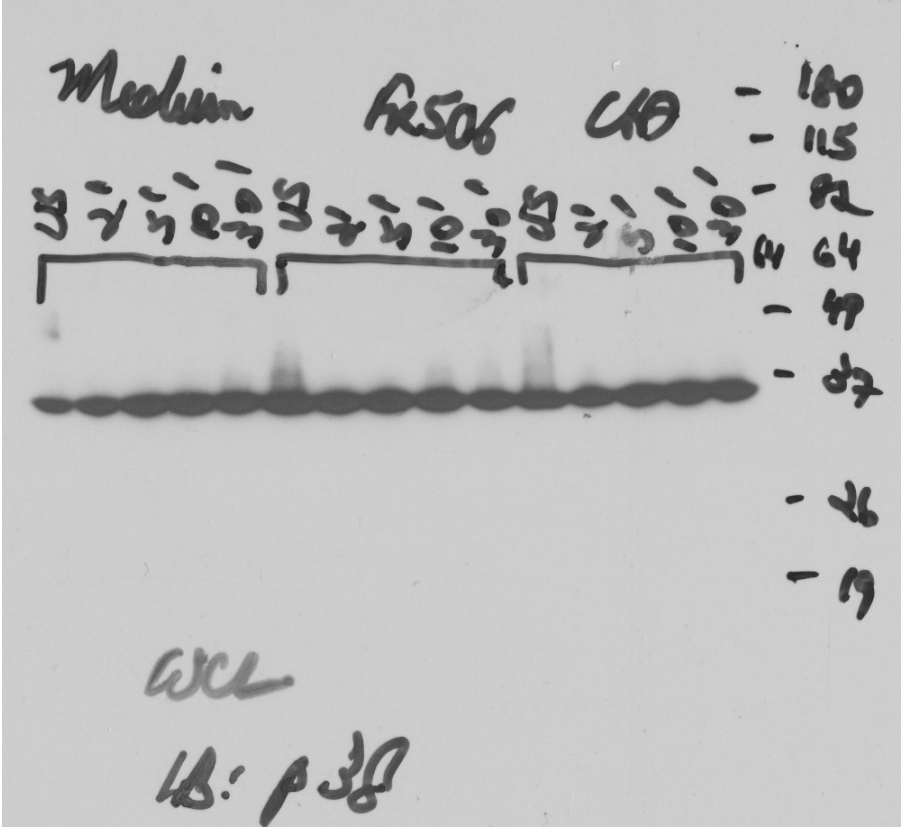 Medium FK506 CsA
US 2' 5' 10' 30' US 2' 5' 10' 30' US 2' 5' 10' 30'
- 180
- 115
- 82
64 64
- 49
- 37
- 26
- 19
WCL
IB: p38